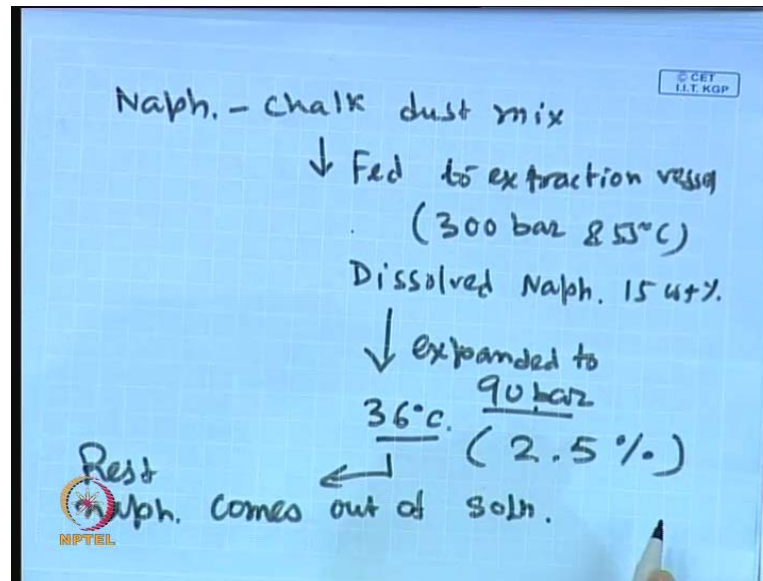 © CET
I.I.T. KGP
Naph. - chalk dust mix
↓ Fed to extraction vessel
(300 bar & 55°C)
Dissolved Naph. 15 wt%.
↓ expanded to
36°C. 90 bar
(2.5%)
Rest
Naph. comes out of soln.
NPTEL